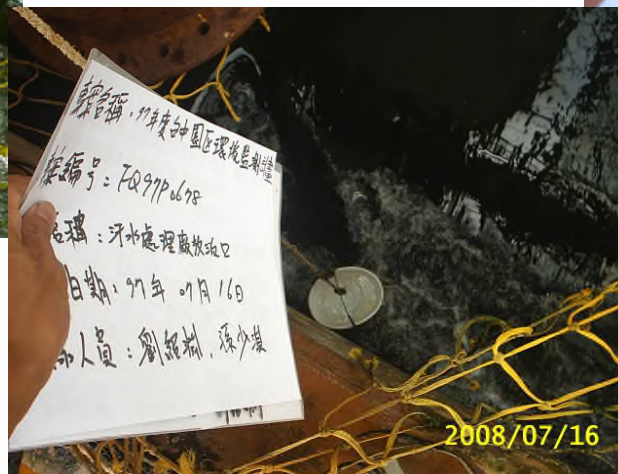 專案名稱：97年度台中園區環境監測計畫
專案編号：FQ97P0678
名稱：汙水處理廠放流口
日期：97年07月16日
人員：劉紹
2008/07/16